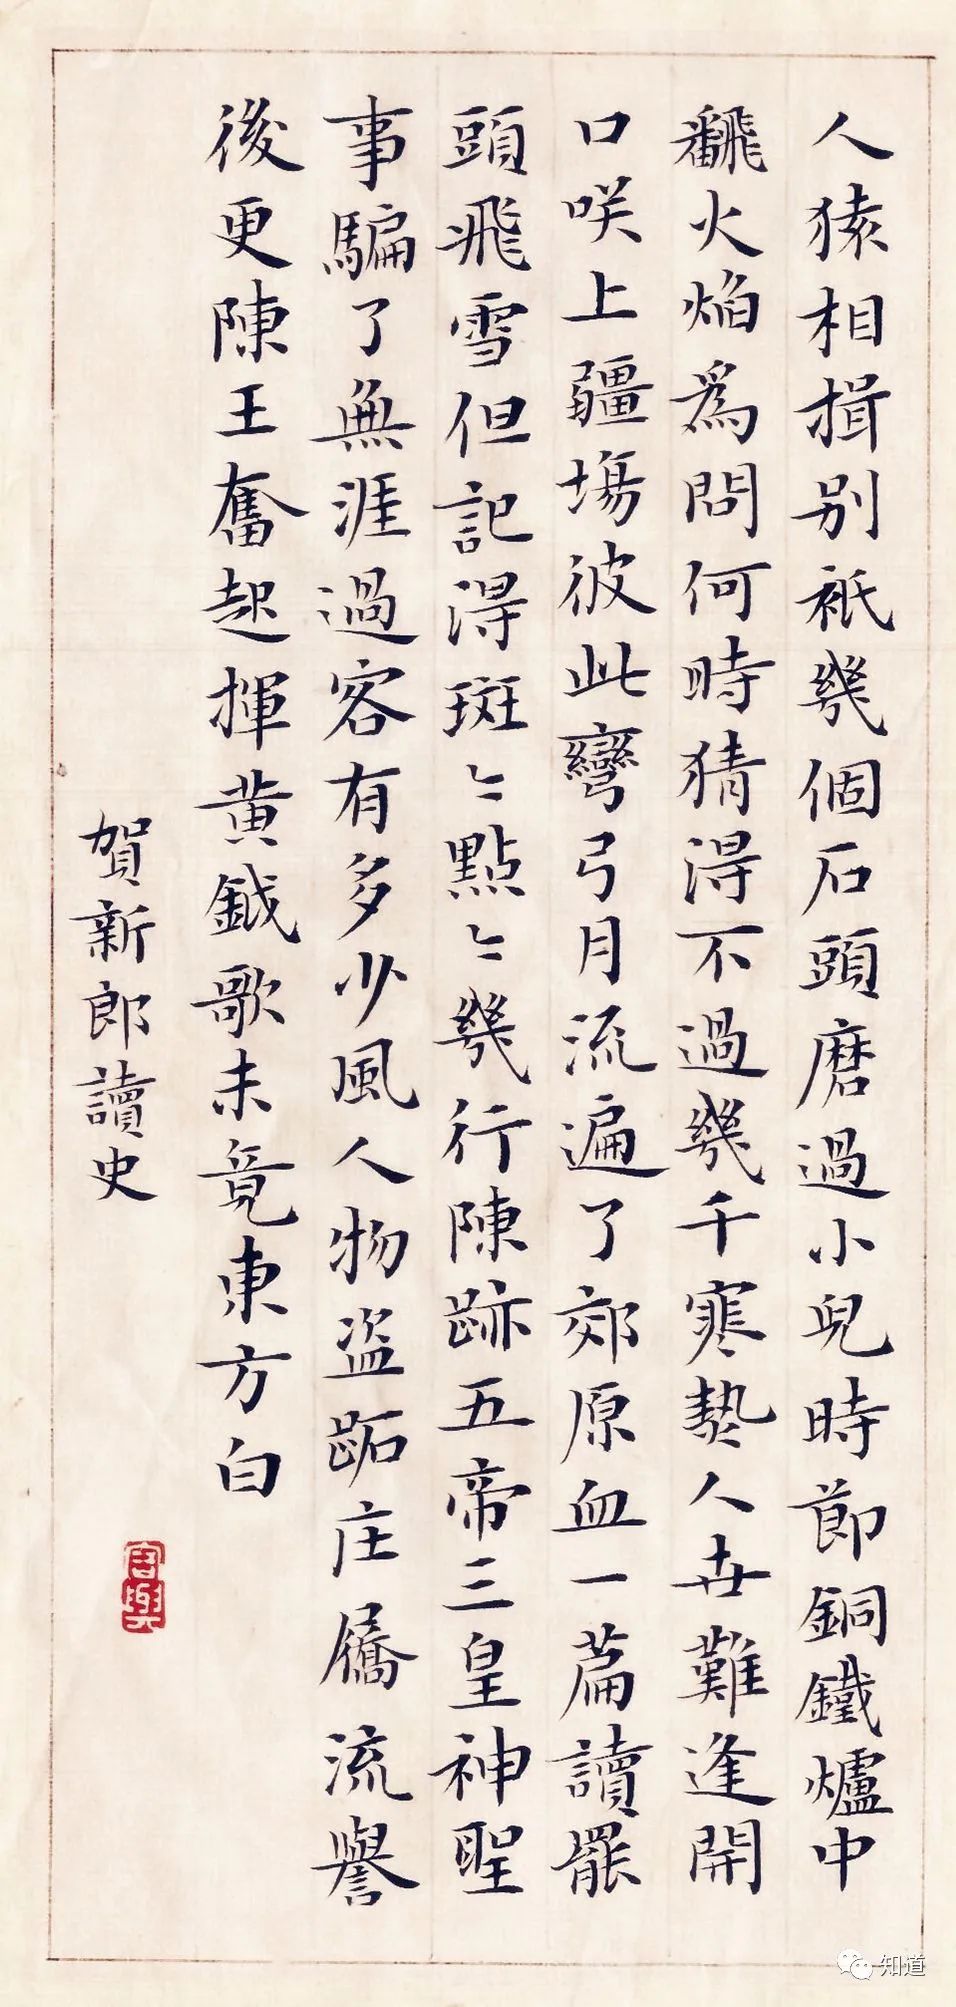 人猿相揖别衹幾個石頭磨過小兒時節銅鐵爐中
飜火焰爲問何時猜得不過幾千寒熱人世難逢開
口咲上疆塲彼此彎弓月流遍了郊原血一篇讀罷
頭飛雪但記得斑〻點〻幾行陳跡五帝三皇神聖
事騙了無涯過客有多少風人物盗跖庄屩流譽
後更陳王奮起揮黄鉞歌未竟東方白
賀新郎讀史
知道